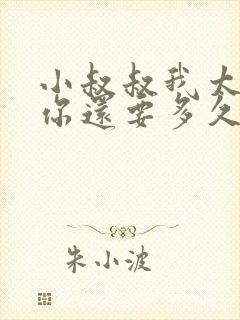 小叔叔我大
你還要多久
朱小波